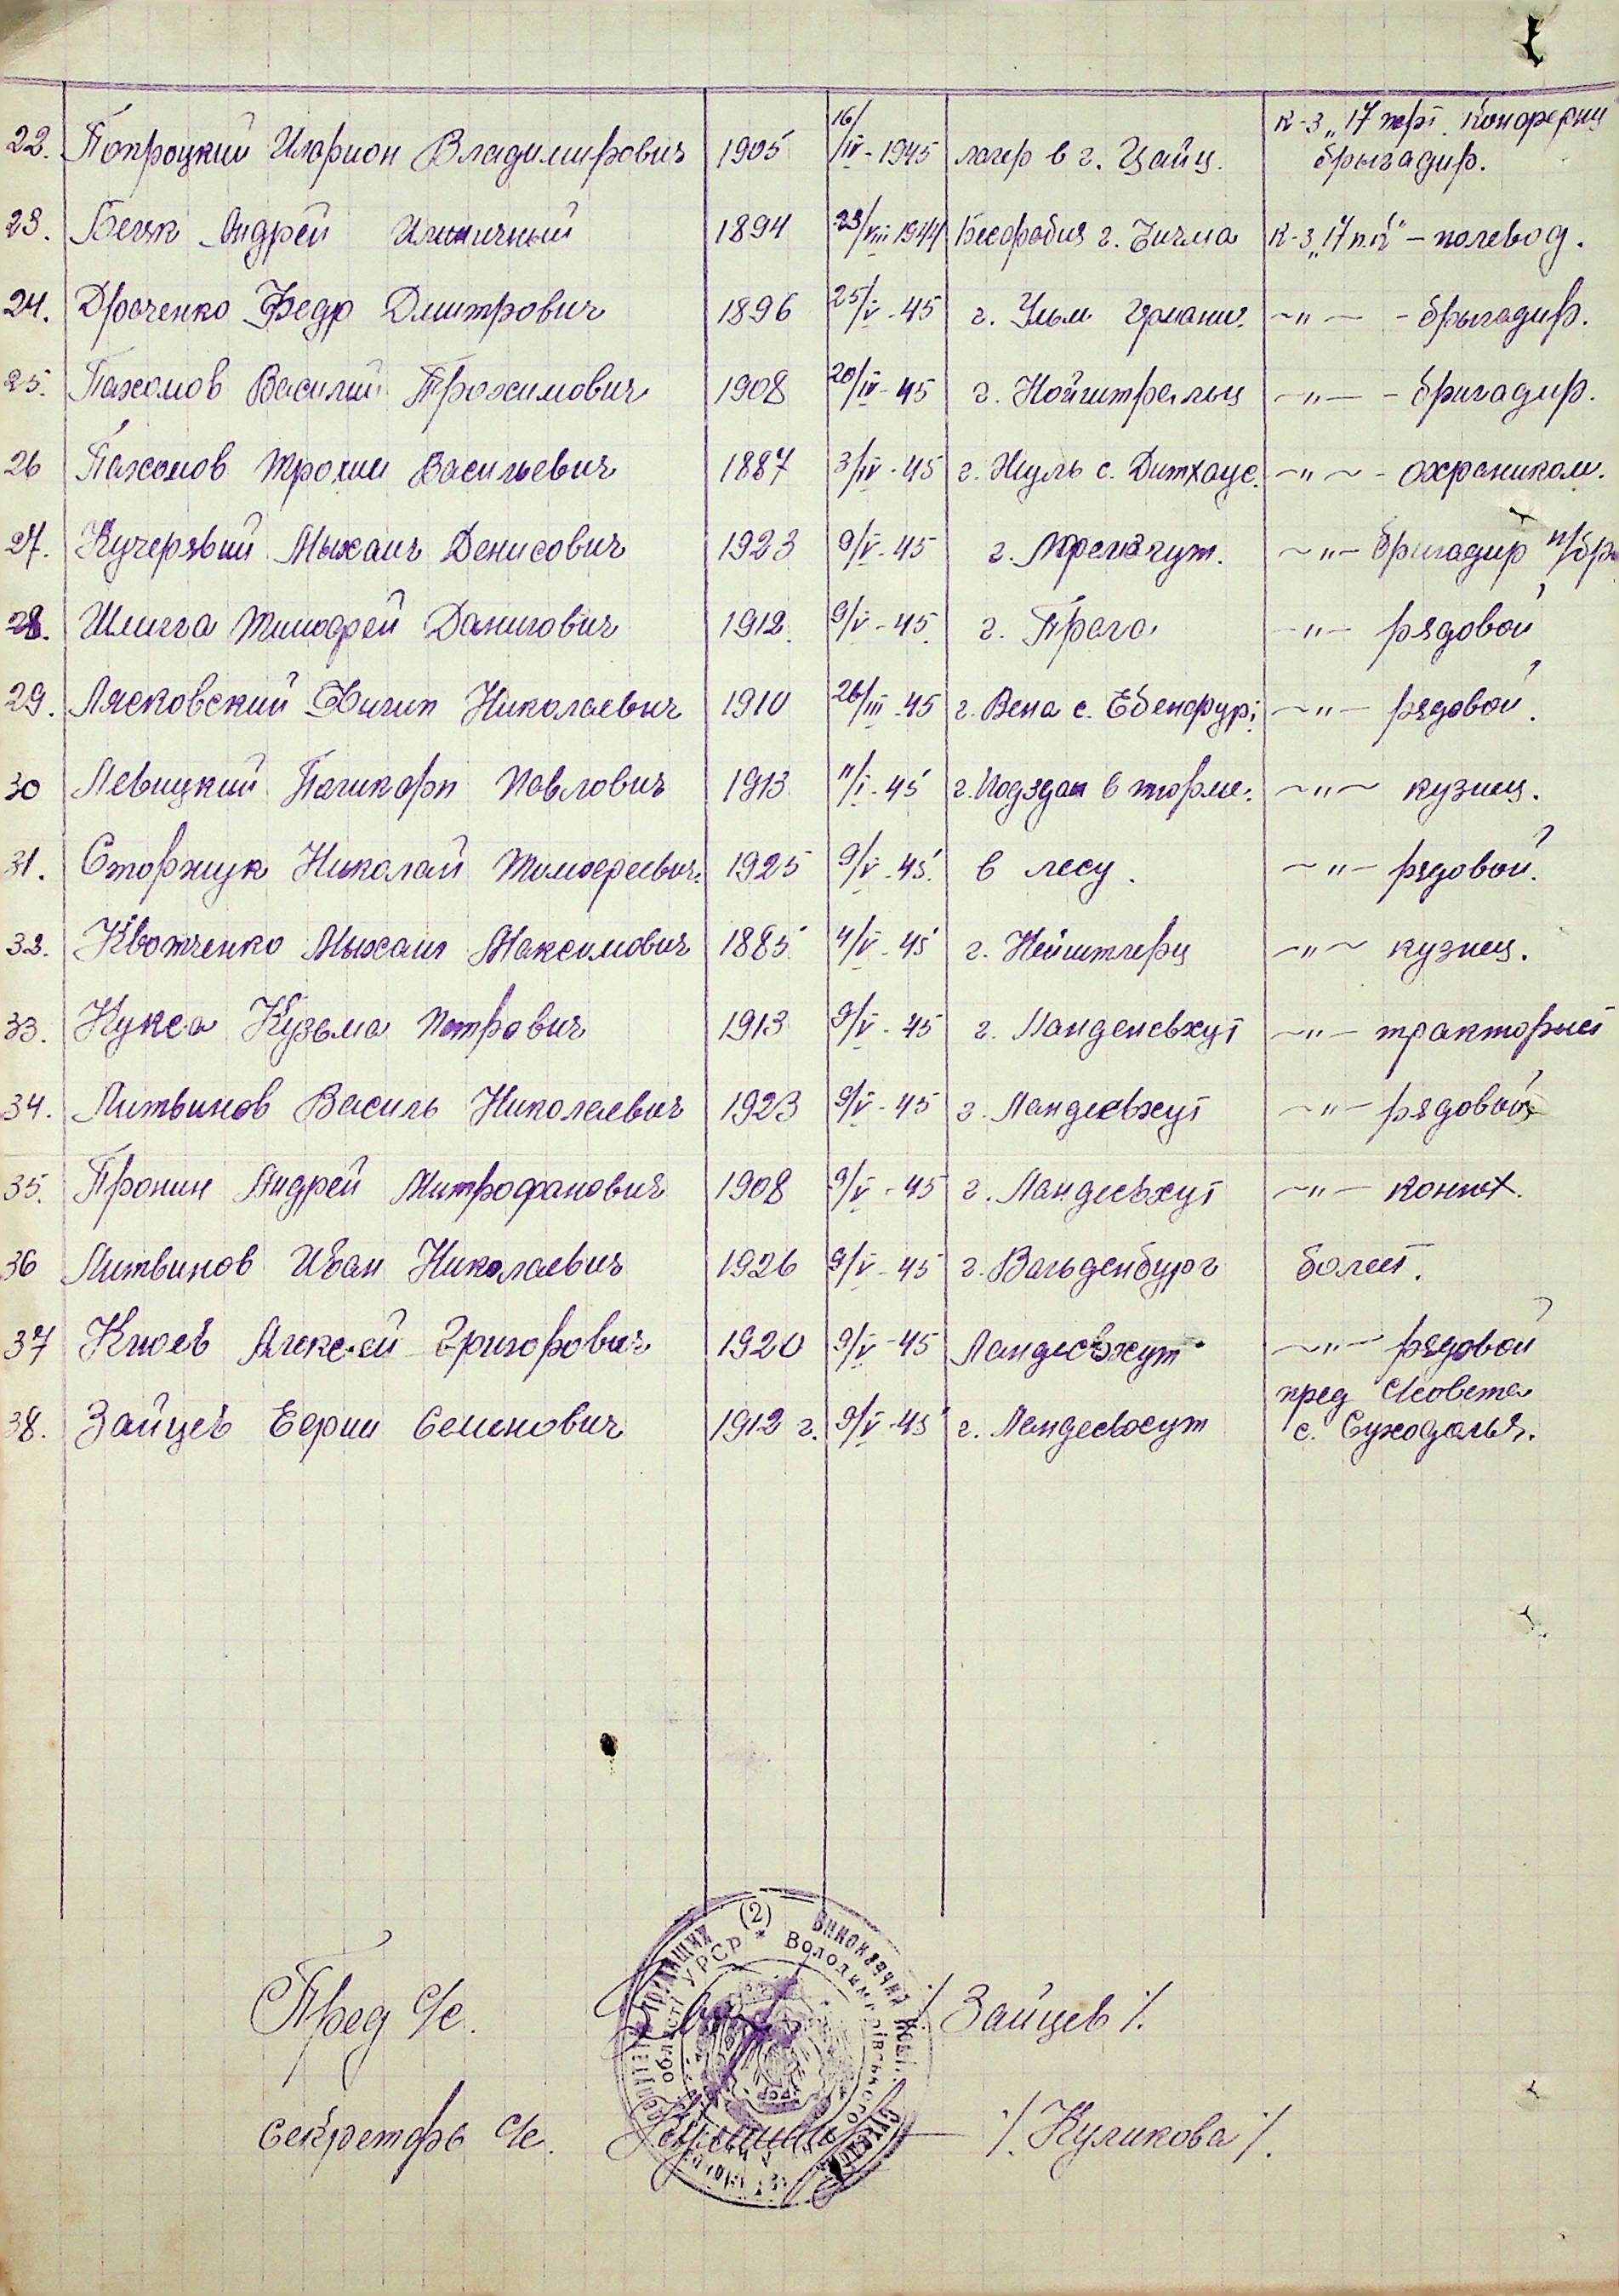 к-з „17 трг. Конфернц
22. Попроцкий Иларион Владимирович 1905 16/IV-1945 лагер в г. Цайц. брыгадир.
23. Бегяк Андрей Илиничный 1894 23/VIII 1944 Бесарабия г. Бичма к-з „17 п.к" - полевод.
24. Драченко Федр Дмитрович 1896 25/V-45 г. Ульм Германи. -"- - брыгадир.
25. Пахомов Василий Трохимович 1908 20/IV-45 г. Нойштрельц -"- - бригадир.
26 Пахомов Трохим Васильевич 1887 3/IV-45 г. Нуль с. Дитхаус. -"- - охраником.
27. Кучерявий Мыхаил Денисович 1923 9/V-45 г. -"- бригадир п/бр.
28. Шлигга Тимофей Данилович 1912 9/V-45 г. Прага -"- рядовой
29. Лясковский Филип Николаевич 1910 26/III-45 г. Вена с. Ебенфурт -"- рядовой.
30 Левицкий Поликарп Павлович 1913 11/I-45 г. в тюрме. -"- кузнец.
31. Сторжук Николай Тимофеевич. 1925 9/V-45. в лесу. -"- рядовой.
32. Квотченко Мыхаил Максимович 1885 4/V-45 г. Нейштлерц -"- кузнец.
33. Кукса Кузьма Петрович 1913 9/V-45 г. Ланденсьхут -"- тракторист
34. Литвинов Василь Николаевич 1923 9/V-45 г. Ландесьхут -"- рядовой
35. Пронин Андрей Митрофанович 1908 9/V-45 г. Ландесьхут -"- конюх.
36 Литвинов Иван Николаевич 1926 9/V-45 г. Вальденбург болеет.
37 Князев Алексей Григорович 1920 9/V-45 Ландесьхут -"- рядовой
пред с/совета
38. Зайцев Ефим Семенович 1912 г. 9/V-45 г. Ландесьхут с. Суходолья.
(2)
Виконавчий
УРСР * Володимирівського
Пред с/с. /Зайцев/.
секретарь с/с. /.Куликова/.